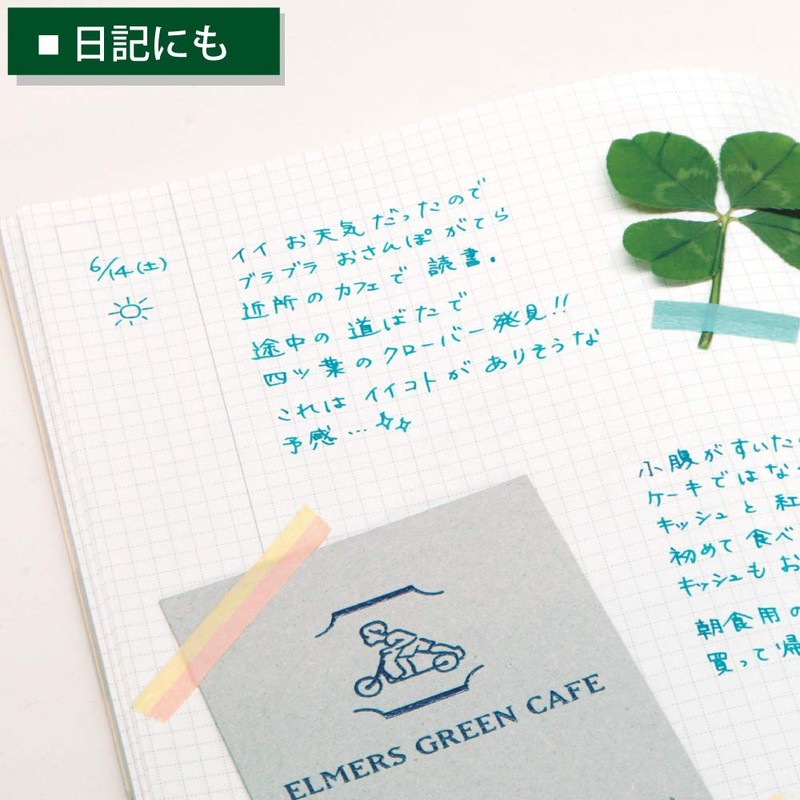 ■ 日記にも
6/14(土)
イイ お天気 だったので
ブラブラ おさんぽ がてら
近所の カフェで 読書.
途中の 道ばたで
四ツ葉のクローバー発見!!
これは イイコトが ありそうな
予感…
小腹がすいた
ケーキではな
キッシュと 紅
初めて 食べ
キッシュも お
朝食用の
買って帰
ELMERS GREEN CAFE